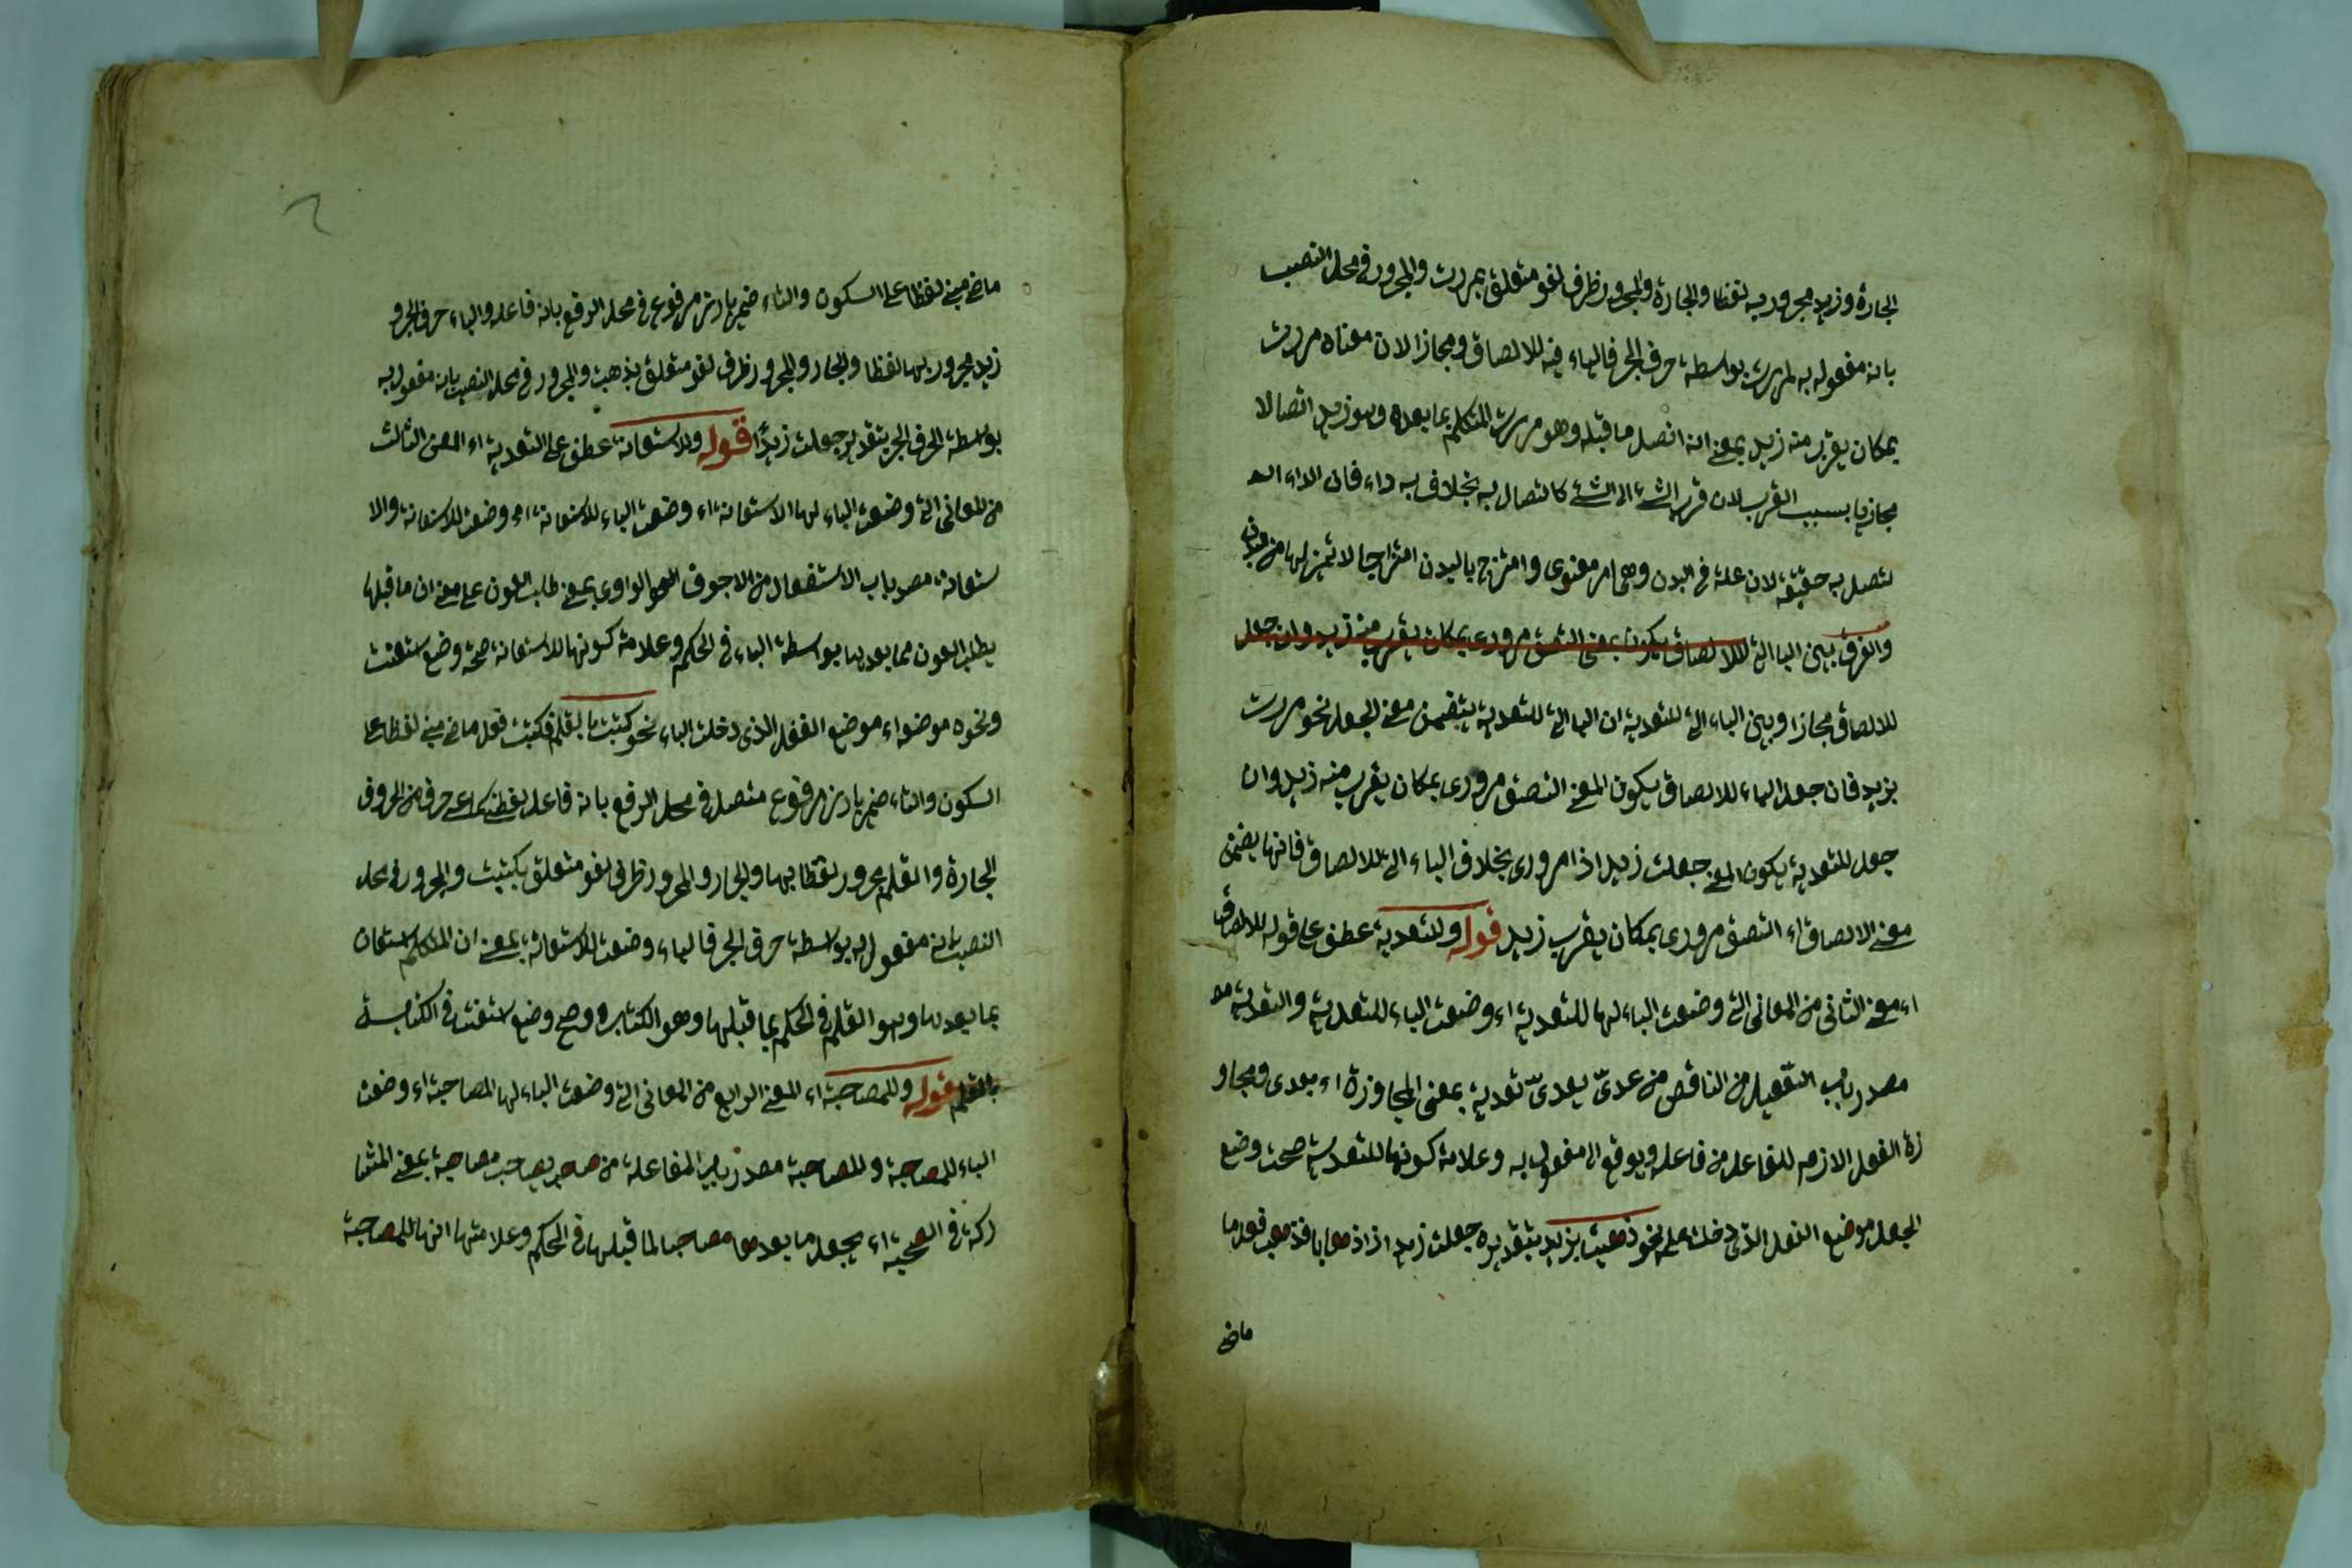 الجارة وزيد مجرور به لفظا والجارة والمجرور ظرف لغو متعلق بمررت والمجرور في محل النصب
بانه مفعوله به لمررت بواسطة حرف الجر فالباء فيه للالصاق ومجازا لان معناه مررت
بمكان يقرب منه زيد بمعنى انه اتصل ما قبله وهو مررت المتكلم بما بعده وهو زيد اتصالا
مجازيا بسبب القرب لان قرب الشئ الى الشئ كاتصال به بخلاف به داء فان الداء الـ
لتصل به حقيقة لان علة في البدن وهي امر معنوى وامتزج بالبدن امتزاجا لا تميز لها من البدن
والفرق بين البا التى للالصاق يكون بمعنى التصق مرورى بمكان يقرب منه زيد وان جعل
للالصاق مجازا وبين الباء التى للتعدية ان البا التى للتعدية يتضمن معنى الجعل نحو مررت
بزيد فان جعل الباء للالصاق يكون المعنى التصق مرورى بمكان يقرب منه زيد وان
جعل للتعدية يكون المعنى جعلت زيد اذا مرورى بخلاف الباء التى للالصاق فانها يضمن
معنى الالصاق اء التصق مرورى بمكان يقرب زيد قوله وللتعدية عطف على قوله للالصاق
اء معنى الثانى من المعانى التى وضعت الباء لها للتعدية اء وضعت الباء للتعدية والتعدية مـ
مصدر باب التفعيل من الناقص من عدىّ يعدىّ تعدية بمعنى المجاوزة اء بعدى ومجاو
زة الفعل الازم للفاعل من فاعله ويوقع الى مفعول به وعلامة كونها للتعدية صحت وضع
الجعل موضع الفعل الذى دخلت عليه نحو ذهبت بزيد بتقديره جعلت زيد اذا ذهابا فذهب فعل ما
ماضى
ماضى مبنى لفظا على السكون والتاء ضمير بارز مرفوع في محل الرفع بانه فاعله والباء حرف الجر و
زيد مجرور بها لفظا والجار والمجرور ظرف لغو متعلق بذهبت والمجرور في محل النصب بانه مفعول به
بواسطة الحرف الجر بتقدير جعلت زيدًا قوله وللاستعانة عطف على التعدية اء المعنى الثالث
من المعانى التى وضعت الباء لها الاستعانة اء وضعت الباء للاستعانة اء وضعت للاستعانة والا
ستعانة مصدر باب الاستفعال من الاجوف الواوى بمعنى طلب العون على معنى ان ما قبلها
يطلب العون مما بعدها بواسطة الباء في الحكم وعلامة كونها للاستعانة صحة وضع استعنت
ونحوه موضعه اء موضع الفعل الذى دخلت الباء نحو كتبت بالقلم فكتبت فعل ماضى مبنى لفظا على
السكون والتاء ضمير بارز مرفوع متصل في محل الرفع بانه فاعل لفظت حرف من الحروف
الجارة والقلم مجرور لفظا بها والجار والمجرور ظرف لغو متعلق بكتبت والمجرور في محل
النصب بانه مفعول به بواسطة حرف الجر فالباء وضعت للاستعانة بمعنى ان المتكلم استعان
بما بعدها وهو القلم في الحكم بما قبلها وهو الكتابة وصح وضع استعنت في الكتابة
بالقلم قوله وللمصاحبة اء المعنى الرابع من المعانى التى وضعت الباء لها المصاحبة اء وضعت
الباء للمصاحبة والمصاحبة مصدر باب المفاعلة من صاحب يصاحب مصاحبة بمعنى المشا
ركة في الصحبة اء يجعل ما بعدها مصاحبا لما قبلها في الحكم وعلامتها انها للمصاحبة